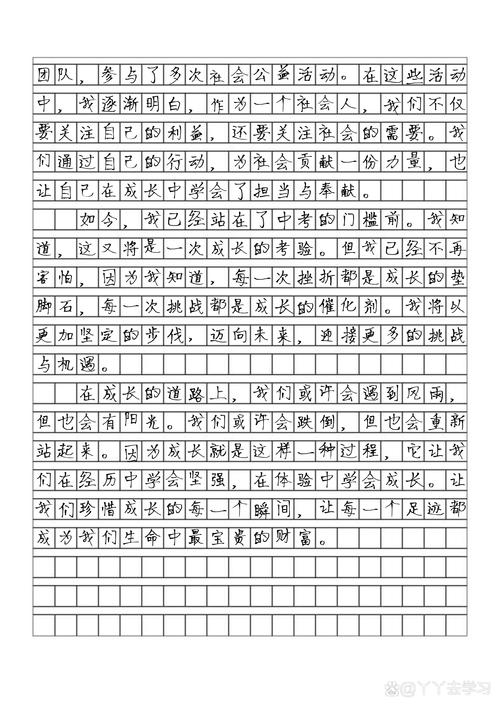 团队，参与了多次社会公益活动。在这些活动
中，我逐渐明白，作为一个社会人，我们不仅
要关注自己的利益，还要关注社会的需要。我
们通过自己的行动，为社会贡献一份力量，也
让自己在成长中学会了担当与奉献。
如今，我已经站在了中考的门槛前。我知
道，这又将是一次成长的考验。但我已经不再
害怕，因为我知道，每一次挫折都是成长的垫
脚石，每一次挑战都是成长的催化剂。我将以
更加坚定的步伐，迈向未来，迎接更多的挑战
与机遇。
在成长的道路上，我们或许会遇到风雨，
但也会有阳光。我们或许会跌倒，但也会重新
站起来。因为成长就是这样一种过程，它让我
们在经历中学会坚强，在体验中学会成长。让
我们珍惜成长的每一个瞬间，让每一个足迹都
成为我们生命中最宝贵的财富。
@丫丫去学习